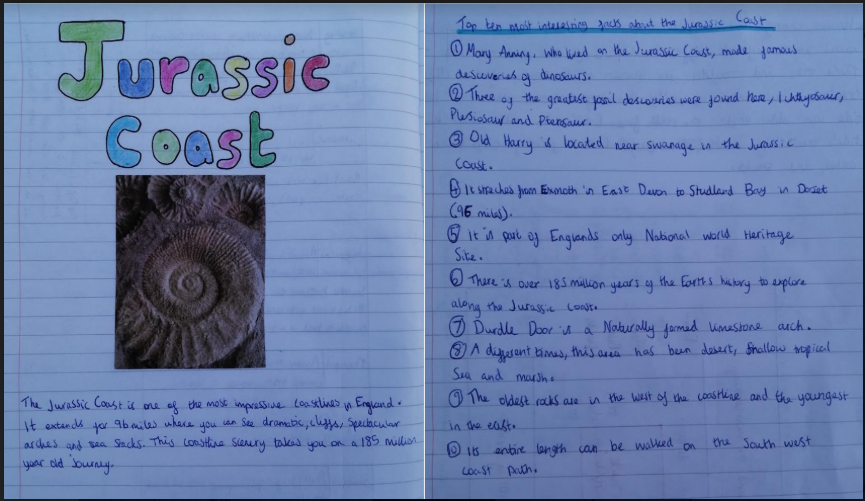 Jurassic
Coast
The Jurassic Coast is one of the most impressive coastlines in England.
It extends for 96 miles where you can see dramatic, cliffs, spectacular
arches and sea stacks. This coastline scenery takes you on a 185 million
year old journey.
Top ten most interesting facts about the Jurassic Coast
① Mary Anning, who lived on the Jurassic Coast, made famous
descoveries of dinosaurs.
② Three of the greatest fossil descoveries were found here, Ichthyosaur,
Plesiosaur and Pterosaur.
③ Old Harry is located near swanage in the Jurassic
Coast.
④ It streches from Exmoth in East Devon to Studland Bay in Dorset
(96 miles).
⑤ It is part of Englands only National world Heritage
Site.
⑥ There is over 185 million years of the Earth's history to explore
along the Jurassic Coast.
⑦ Durdle Door is a Naturally formed limestone arch.
⑧ A different times, this area has been desert, shallow tropical
Sea and marsh.
⑨ The oldest rocks are in the west of the coastline and the youngest
in the east.
⑩ Its entire length can be walked on the South west
coast path.